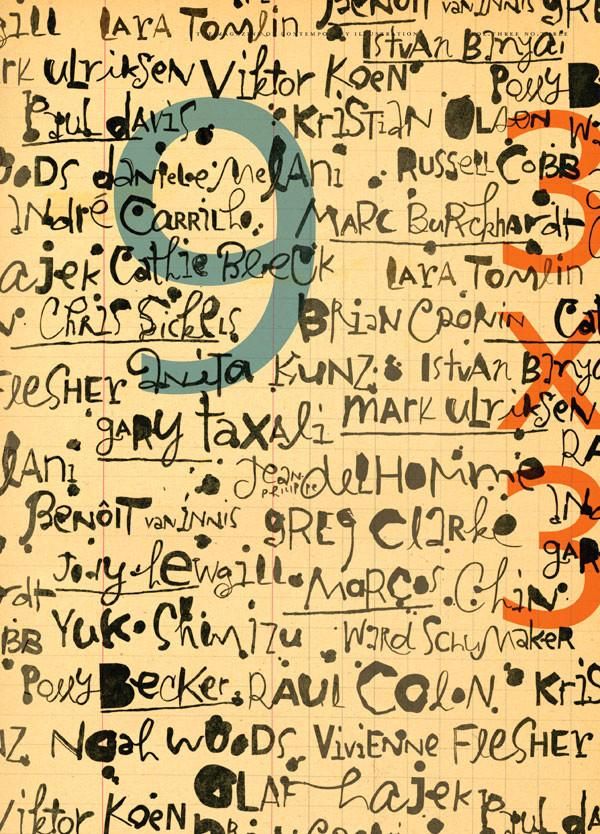 gill LARA TOMlin BENOÎT van INNIS gRE
THE MAGAZINE OF CONTEMPORARY ILLUSTRATION
IstvAn Banyai
rk ulriksEN Viktor KOEN Polly B
Paul dAViS KriSTiaN OLsen
9 3 x 3
oODS daniele MelAni RUSSell CoBB
ANdré CARRilho MARC BuRckhardt
ajek Cathie BleeCk LARA TOMlin
CHRiS SickelS BRiaN CRONin Cat
FleSHER ANiTA KUNZ IstvAn Banya
gARy taxAli MARK ulriksEN
lAni Jean PHiLiPPE delHOMME RA
BENOÎT van INNIS gREg Clarke ANd
gAR
Jody hewgill
rdt MaRcos Chin
BB YUKO Shimizu Ward SchuMaKER
Polly BeckeR RAUL COloN KriS
NZ Noah WOODS ViViENNE FleSHER
OLAF hajek
Viktor KOEN Paul da
BRiaN